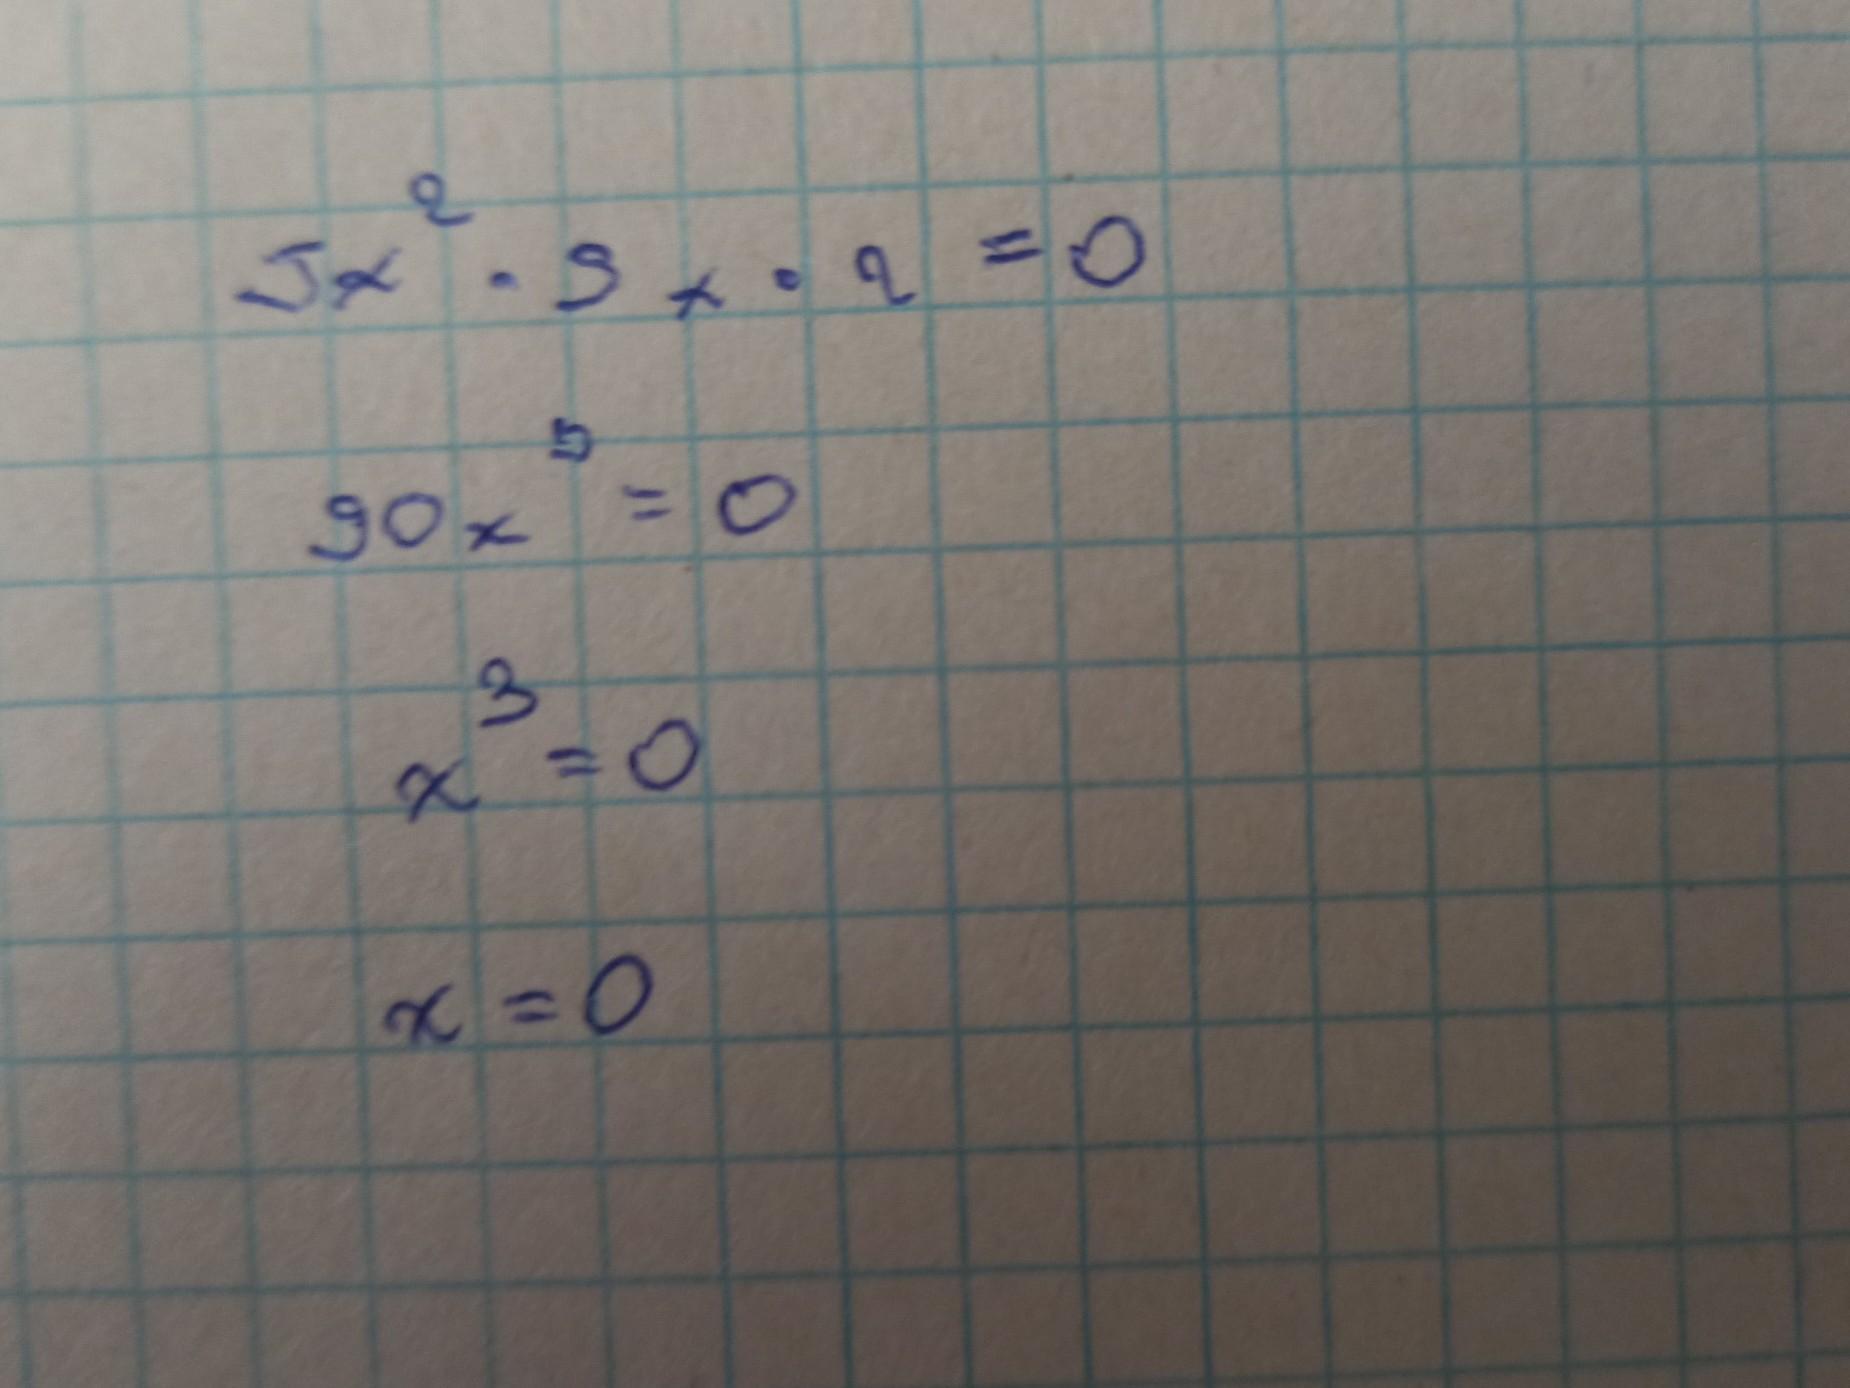 5x² · 9x · 2 = 0
90x³ = 0
x³ = 0
x = 0